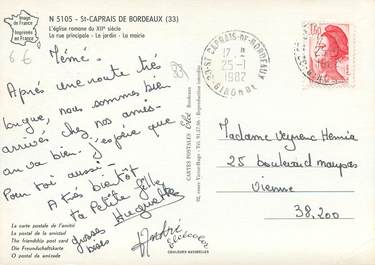 Image de France
Imprimée en France
N 5105 - St-CAPRAIS DE BORDEAUX (33)
L'église romane du XIIe siècle
La rue principale - Le jardin - La mairie
6€
33
Mémé.
Après une route très
longue, nous sommes bien
arrivés chez nos amis
on va bien. j'espère que
Pour toi aussi -
A très bientôt
ta Petite fille
Huguette
grosses
bises
André
La carte postale de l'amitié
La postal de la amistad
The friendship post card
Die Freundschaftskarte
O postal da amizade
CARTES POSTALES Elcé Bordeaux
Elcécolor
COULEURS NATURELLES
ST CAPRAIS-DE-BORDEAUX
25-1
1982
GIRONDE
1,60
Madame Veyrenc Hémia
25 boulevard maupas
Vienne
38.200